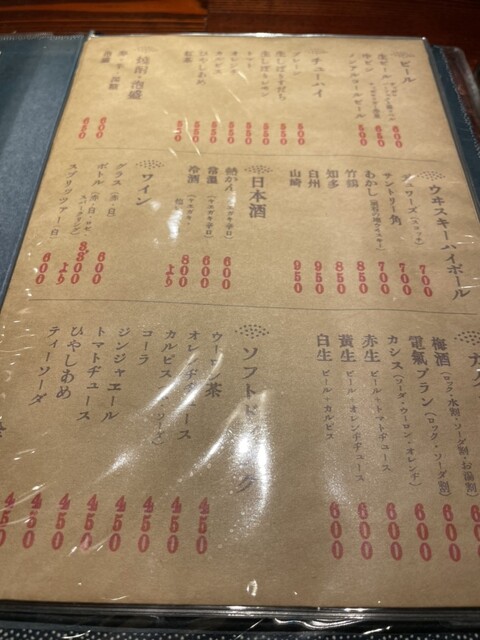 ビール
生ビール 600
生ビン
ノンアルコールビール 500
チューハイ
プレーン 500
生しぼりレモン 550
トマト 550
オレンジ 550
カルピス 550
ひやしあめ 550
紅茶 550
焼酎・泡盛
600
650
ウヰスキーハイボール
デュワーズ(スコッチ) 700
サントリー角 700
あかし 700
竹鶴 850
知多 850
白州 950
山崎 950
日本酒
熱かん 600
常温 600
冷酒 800より
ワイン
グラス(赤・白) 600
ボトル 3,300より
スプリッツァー(白) 600
梅酒(ロック・水割・ソーダ割・お湯割) 600
電氣ブラン(ロック・ソーダ割) 600
カシス(ソーダ・ウーロン・オレンヂ) 600
赤生 ビール・トマトヂュース 600
黄生 ビール・オレンヂヂュース 600
白生 ビール・カルピス 600
ソフトドリンク
ウーロン茶 450
オレンヂヂュース 450
カルピス 450
コーラ 450
ジンジャエール 450
トマトヂュース 450
ひやしあめ 450
ティーソーダ 450